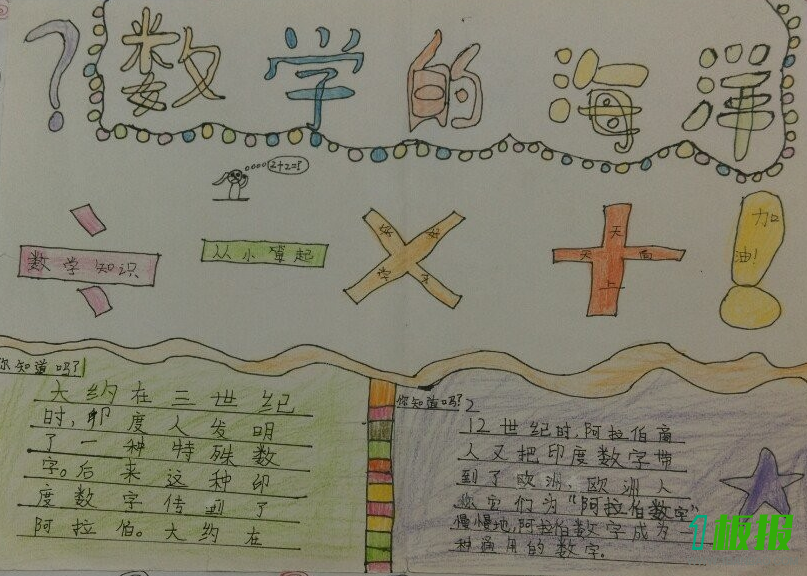 ?数学的海洋
2+2=5
数学知识
从小算起
好好学
天天向上
加油!
你知道吗?1
大约在三世纪
时,印度人发明
了一种特殊数
字。后来这种印
度数字传到了
阿拉伯。大约在
你知道吗?2
12世纪时,阿拉伯商
人又把印度数字带
到了欧洲,欧洲人
称它们为"阿拉伯数字"
慢慢地,阿拉伯数字成为一
种通用的数字。
1板报